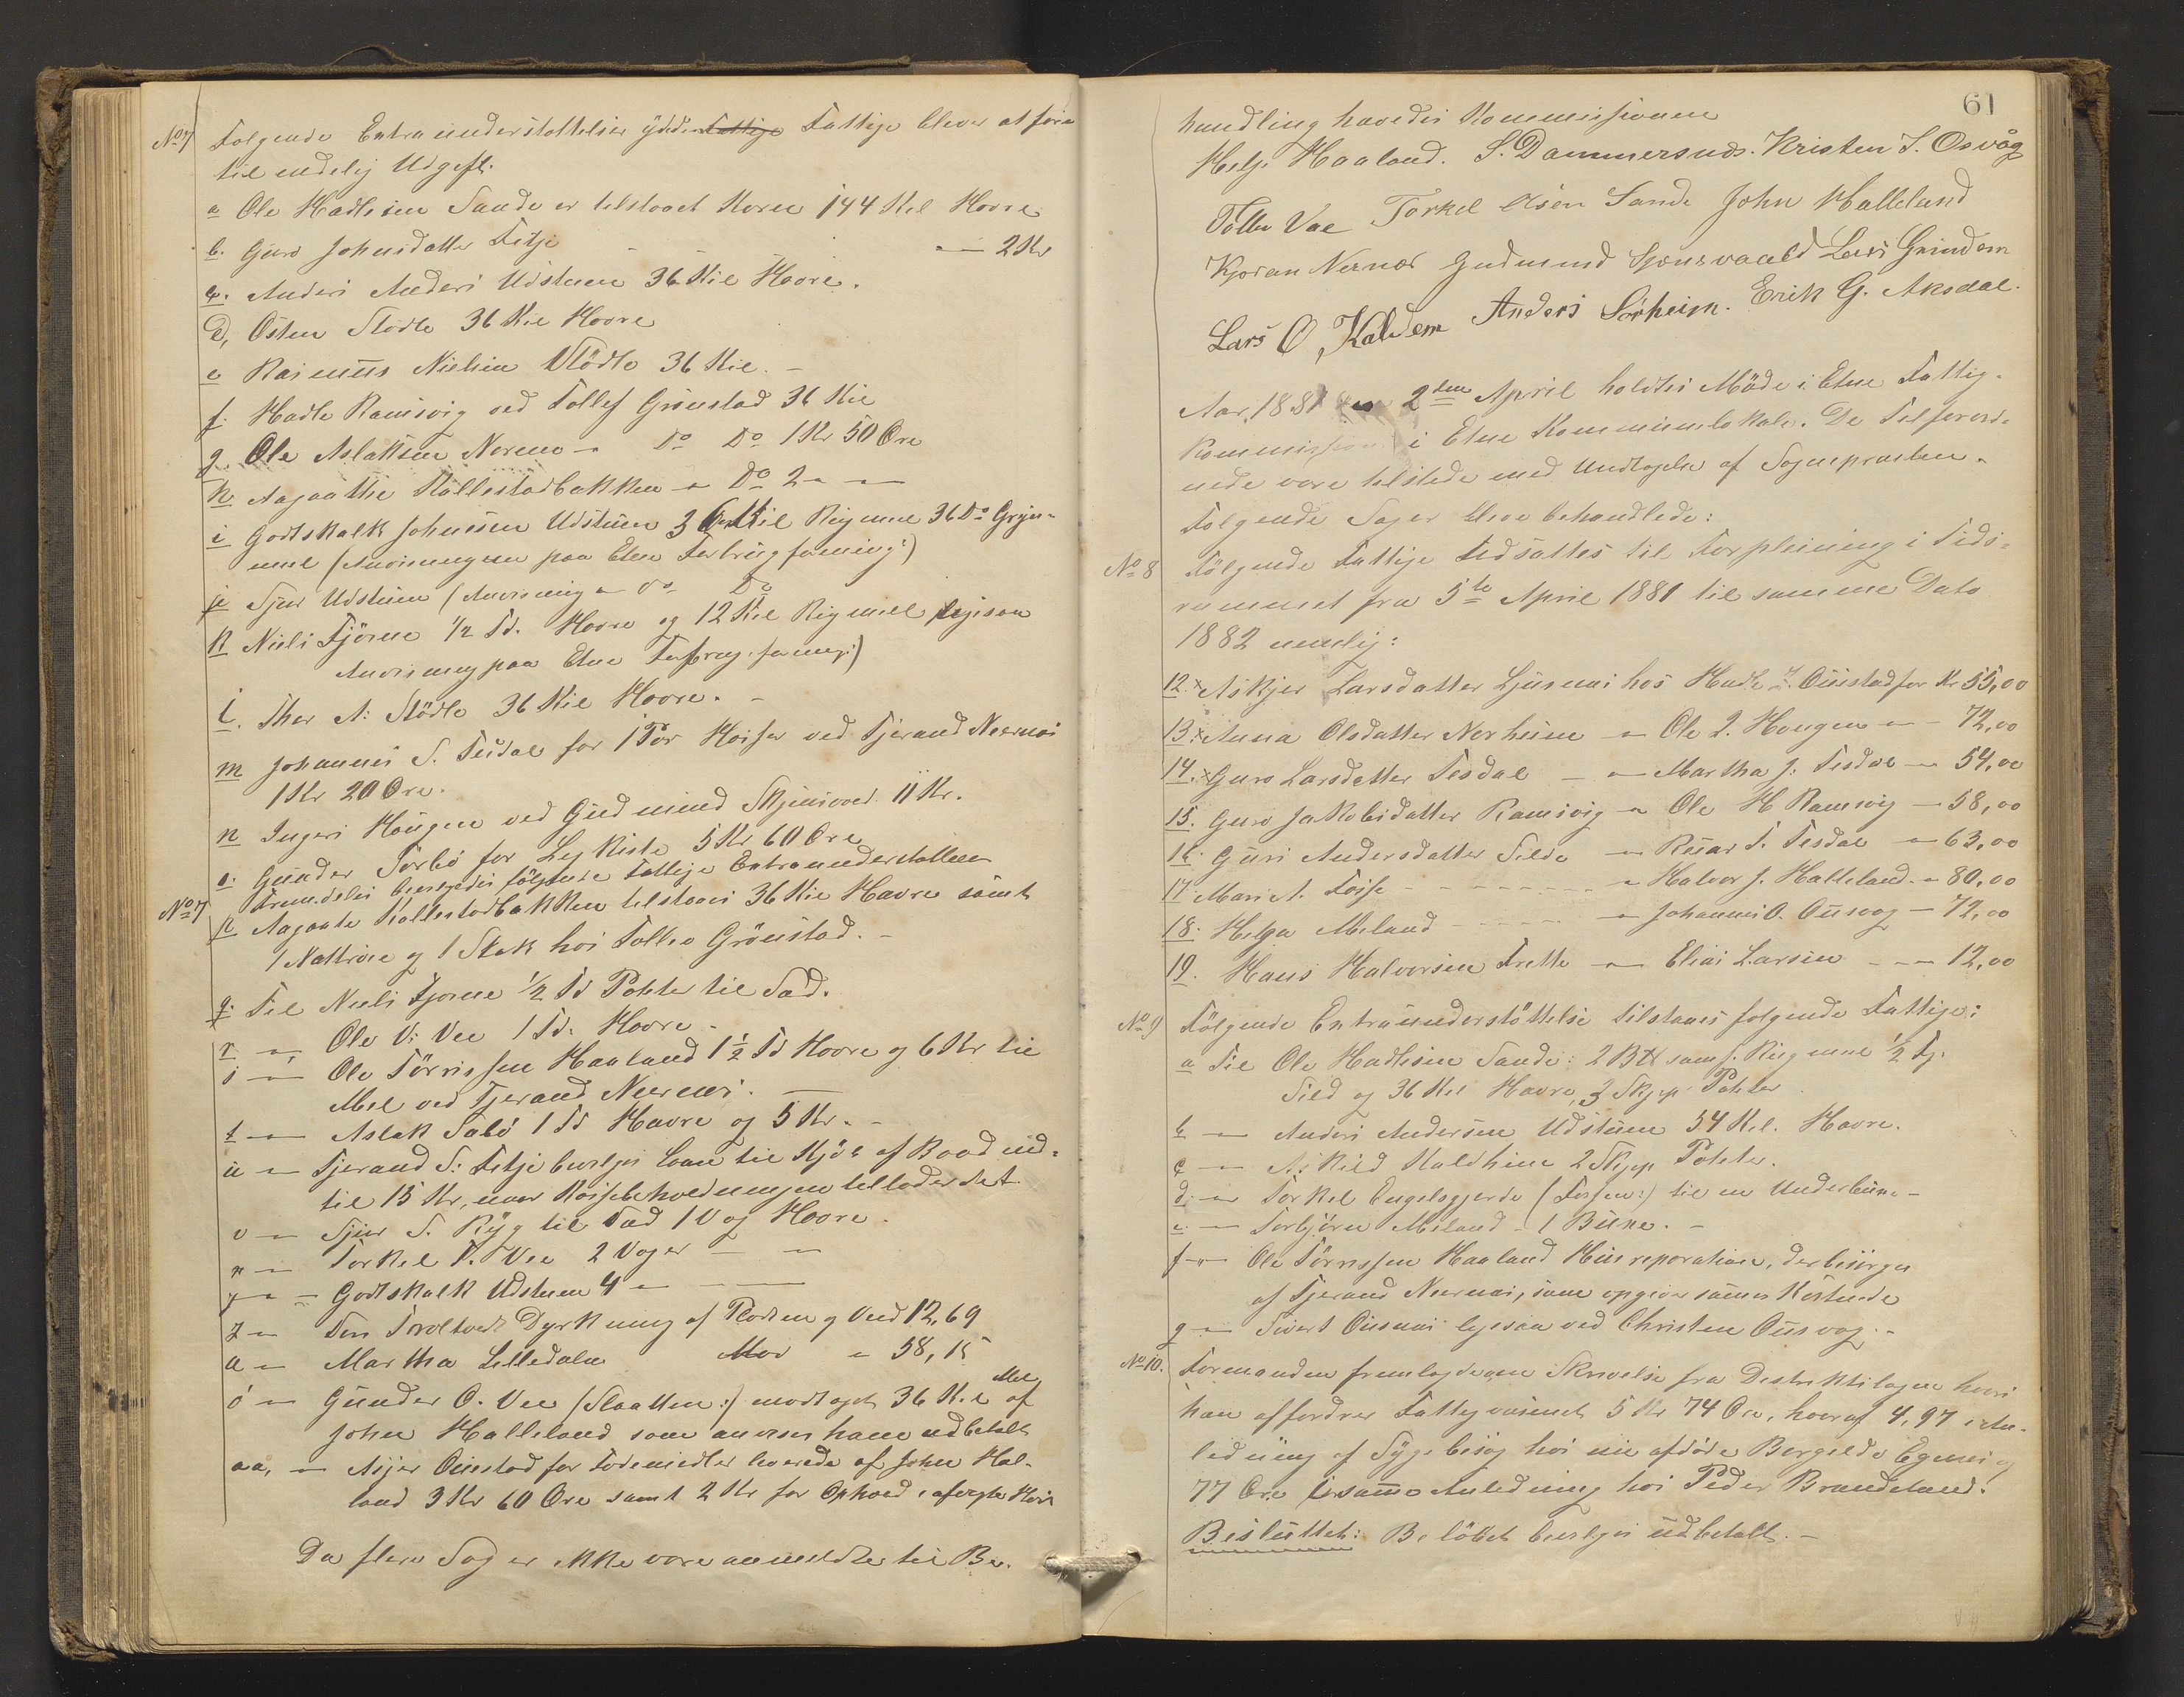 No 7 Følgende Extraunderstøttelser ydede Fattige Fattige bliver at føre
til endelig Udgift.
a Ole Hadlesen Sande er tilstaaet Korn 144 Kil Havre
b. Guro Johnsdatter Fitje - - - 2 Kr
c. Anders Anders Udstuen 36 Kil Havre.
d, Østen Stødle 36 Kil Havre
e Rasmus Nielsen Stødle 36 Kil. -
f. Hadle Ramsvig ved Tollef Grønstad 36 Kil
g. Ole Aslaksen Nernes - Do Do 1 Kr 50 Øre
h Aagaathe Kallestadbakken - Do 2 - -
i Godtskalk Johnesen Udstuen 36 Kil Rugmel 36 Do Gryn-
mel (Anvisningen paa Etne Forbrugsforening:)
j Sjur Udstuen (Anvisning - Do Do
k Niels Fjørne 1/2 Td. Havre og 12 Kil Rugmel ligesaa
Anvisning paa Etne Forbrugsforening:)
l. Thor A: Stødle 36 Kil Havre. -
m Johannes S. Tesdal for 1 Par Hoser ved Tjerand Neernæs
1 Kr 20 Øre.
n Ingeri Haugen ved Gudmund Skjensvold 11 Kr.
o. Gunder Sørbø for Ligkiste 5 Kr 60 Øre
No 7 Fremdeles bevilgedes følgende Fattige Extraunderstøttelse
p Aagaate Kallestadbakken tilstaaes 36 Kil Havre samt
1 Nattrøie og 1 Stak hos Tollev Grønstad. -
q. Til Niels Fjørne 1/2 Td Poteter til Sæd.
r - Ole V: Vee 1 Td. Havre -
s - Ole Tørrissen Haaland 1 1/2 Td Havre og 6 Kr til
Mel ved Tjerand Neernæs. -
t - Aslak Sabø 1 Td Havre og 5 Kr. -
u - Tjerand S: Fitje bevilges Laan til Kjøb af Baad ind-
til 15 Kr, naar Kassebeholdningen tillader det
v - Sjur S. Ryg til Sæd 1 Vog Havre.
x - Torkel T. Vee 2 Voger - -
y - - Godtskalk Udstuen 4 - -
z - Dyrkning af Ploden og Ved 12,69
æ - Martha Lilledalen - 58,15
ø - Gunder O. Vee (Slaatten:) modtaget 36 Kil Mel af
John Halleland som anvises ham udbetalt
aa, - Asjer Ønestad for Fødemidler leverede af John Hal-
land 3 Kr 60 Øre samt 2 Kr for Ophold
Da flere Sager ikke vare anmeldte til Be-
61
handling hævedes Kommissionen
Helje Haaland. S. Dammersnæs. Kristen J. Osvåg
Tollev Vae Torkel Olsen Sande John Halleland
Kjøran Nernæs Gudmund Lars Grindem
Lars O, Kaldem Anders Sørheim. Erik G. Aksdal.
Aar 1881 den 2den April holdtes Møde i Etne Fattig-
kommission i Etne Kommunelokale. De Tilforord-
nede vare tilstede med Undtagelse af Sognepræsten.
Følgende Sager bleve behandlede:
No 8 Følgende Fattige udsattes til Forpleining i Tids-
rummet fra 5te April 1881 til samme Dato
1882 nemlig:
12. x Askjer Larsdatter Ljusnæs hos Hadle Ønestad for Kr 55,00
13. x Anna Olsdatter Norheim - Ole L. Haugen - - 72,00
14. x Guro Larsdatter Tesdal - - Martha J. Tesdal - 54,00
15. Guro Jakobsdatter Ramsvig - Ole H Ramsvig - 58,00
16. Guri Andersdatter Silde - Knut T. Tesdal - 63,00
17 Mari A. Tøsse - - - - - - - Halvor J. Halleland - 80,00
18. Helga Meland - - - - - Johannes O. Øusvog - 72,00
19. Hans Halvorsen Frette - Elias Larsen - - - 12,00
No 9 Følgende Extraunderstøttelse tilstaaes følgende Fattige:
a Til Ole Hadlesen Sande: Rugmel 1/2 Tj.
Sild og 36 Kil Havre, 3 Skjep Poteter.
b - Anders Andersen Udstuen 54 Kil. Havre.
c - Askild Kaldheim 2 Skjep Poteter.
d. - Torkel Engelsgjerde (Fossen:) til en Underbuxe -
e. - Torbjørn Meland - 1 Buxe. -
f - Ole Tørrissen Haaland Husreparation, der besørges
af Tjerand Neernæs, som opgiver sammes Kostende
g - Sivert Øusnæs ligesaa ved Christen Øusvog. -
No 10. Formanden fremlagde en Skrivelse fra Distriktslægen hvori
han affordrer Fattigvæsenet 5 Kr 74 Øre, hvoraf 4,97 i An-
ledning af Sygebesøg hos nu afdøde Bergilde Egenæs og
77 Øre i samme Anledning hos Peder Brandeland.
Besluttet: Beløbet bevilges udbetalt. -